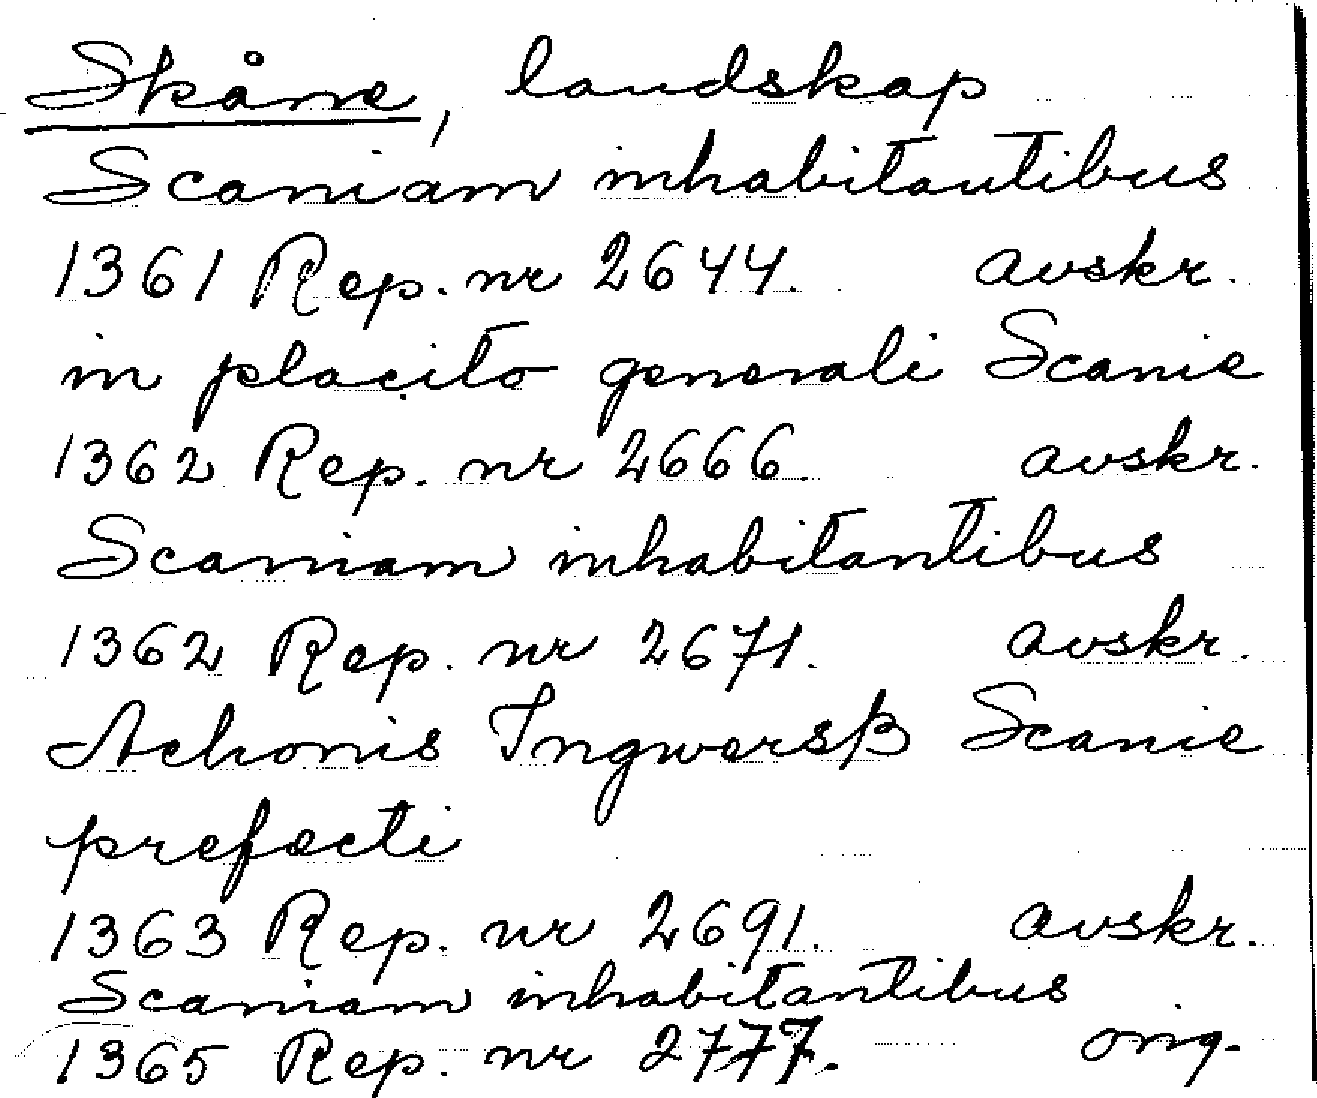 Skåne, landskap
Scaniam inhabitantibus
1361 Rep. nr 2644. avskr.
in placito generali Scanie
1362 Rep. nr 2666. avskr.
Scaniam inhabitantibus
1362 Rep. nr 2671. avskr.
Achonis Ingwersß Scanie
prefecti
1363 Rep. nr 2691. avskr.
Scaniam inhabitantibus
1365 Rep. nr 2777. orig.